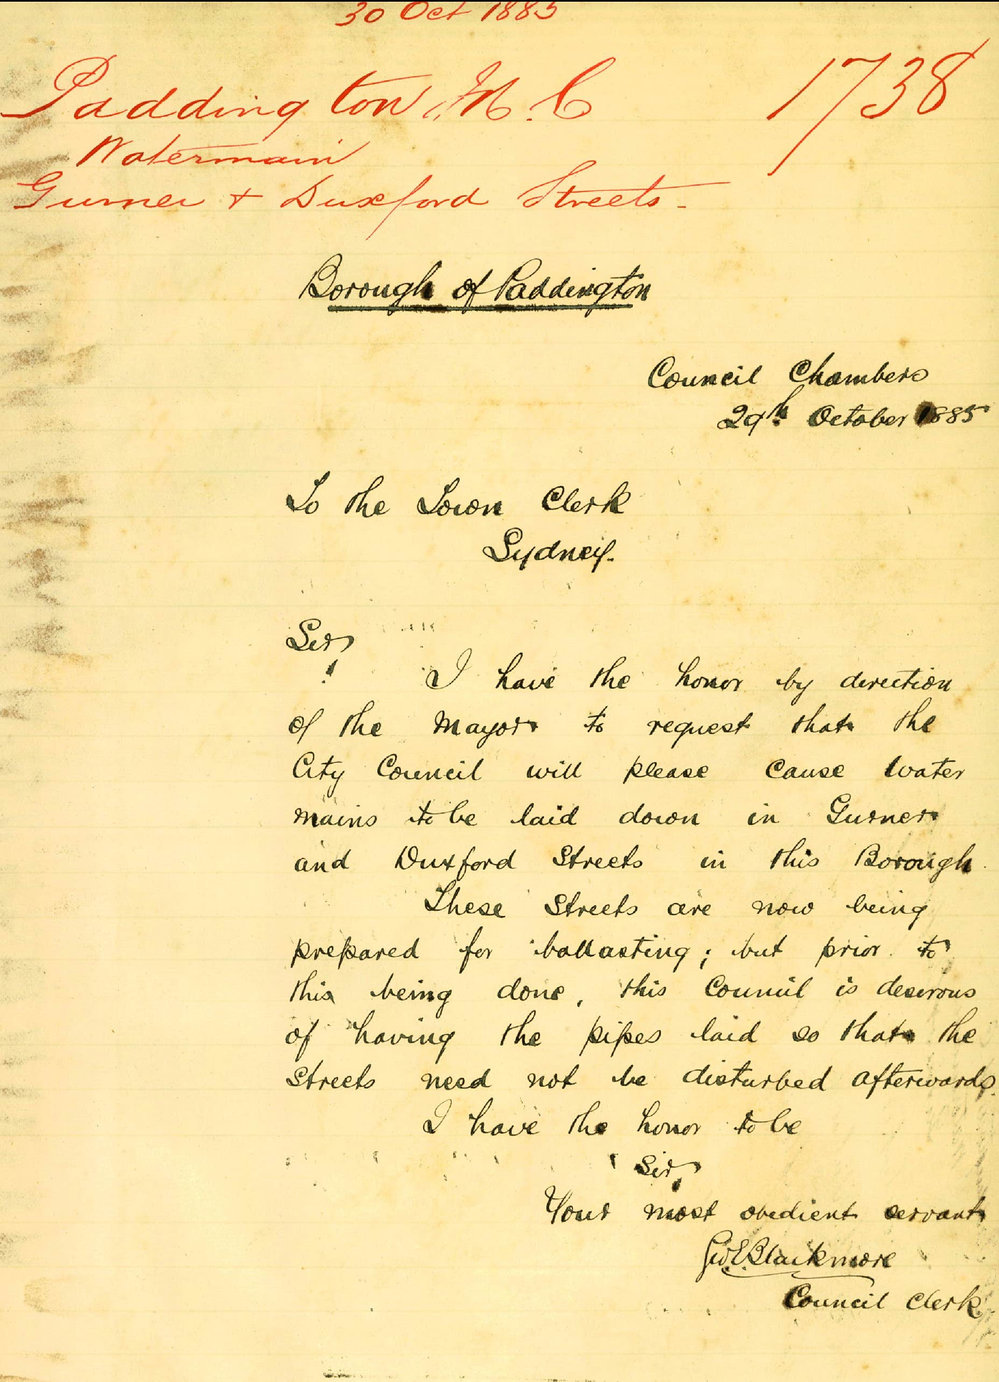 30 Oct 1885
Paddington M.C 1738
Watermain
Gurner + Duxford Streets -
Borough of Paddington
Council Chambers
29th October 1885
To the Town Clerk
Sydney.
Sir,
I have the honor by direction
of the Mayor to request that the
City Council will please cause water
mains to be laid down in Gurner
and Duxford Streets in this Borough.
These Streets are now being
prepared for ballasting; but prior to
this being done, this Council is desirous
of having the pipes laid so that the
Streets need not be disturbed afterwards.
I have the honor to be
Sir,
Your most obedient servant
Geo. E. Blackmore
Council Clerk